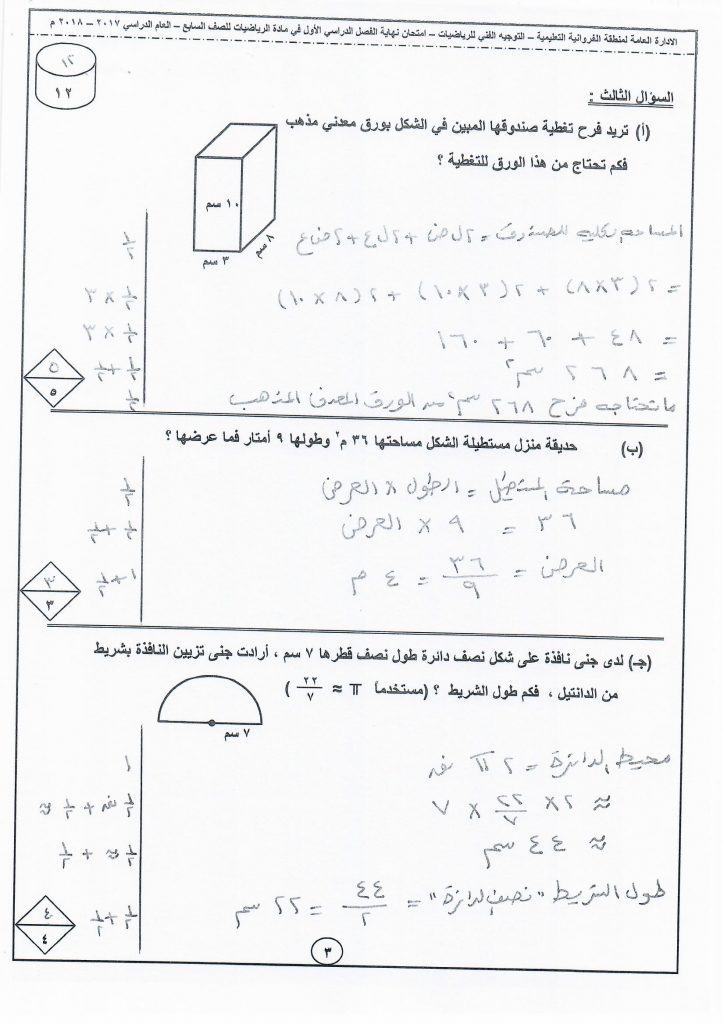 الادارة العامة لمنطقة الفروانية التعليمية – التوجيه الفني للرياضيات – امتحان نهاية الفصل الدراسي الأول في مادة الرياضيات للصف السابع – العام الدراسي ٢٠١٧ – ٢٠١٨ م
١٢
١٢
السؤال الثالث :
(أ) تريد فرح تغطية صندوقها المبين في الشكل بورق معدني مذهب
فكم تحتاج من هذا الورق للتغطية ؟
١٠ سم
٨ سم
٣ سم
المساحة الكلية للصندوق = ٢ ل ض + ٢ ل ع + ٢ ض ع
١/٢
= ٢ (٣ × ٨) + ٢ (٣ × ١٠) + ٢ (٨ × ١٠)
١/٢ × ٣
= ٤٨ + ٦٠ + ١٦٠
١/٢ × ٣
= ٢٦٨ سم٢
١/٢ + ١/٢
ما تحتاجه فرح ٢٦٨ سم٢ من الورق المعدني المذهب
١/٢
٥
٥
(ب) حديقة منزل مستطيلة الشكل مساحتها ٣٦ م٢ وطولها ٩ أمتار فما عرضها ؟
مساحة المستطيل = الطول × العرض
١/٢
٣٦ = ٩ × العرض
١/٢ + ١/٢
العرض = ٣٦/٩ = ٤ م
١ + ١/٢
٣
٣
(جـ) لدى جنى نافذة على شكل نصف دائرة طول نصف قطرها ٧ سم ، أرادت جنى تزيين النافذة بشريط
من الدانتيل ، فكم طول الشريط ؟ (مستخدماً π ≈ ٢٢/٧ )
٧ سم
محيط الدائرة = ٢ π نق
١
≈ ٢ × ٢٢/٧ × ٧
١/٢ نق + ١/٢ ≈
≈ ٤٤ سم
١/٢ ≈ + ١/٢
طول الشريط "نصف الدائرة" = ٤٤/٢ = ٢٢ سم
١/٢ + ١/٢
٤
٤
٣